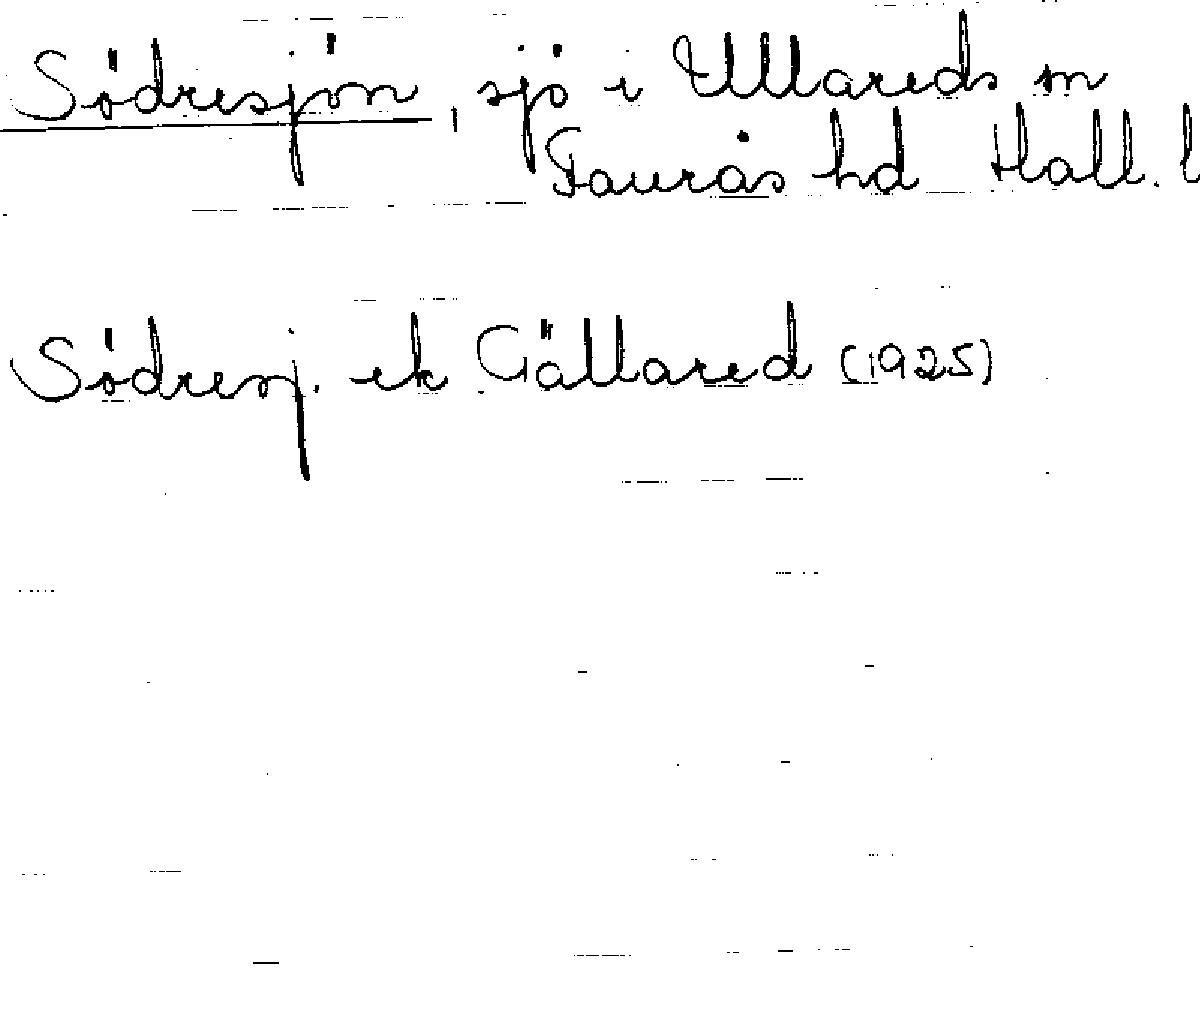 Södresjön, sjö i Ullareds sn
Faurås hd Hall. l
Södresj. ek Gällared (1925)